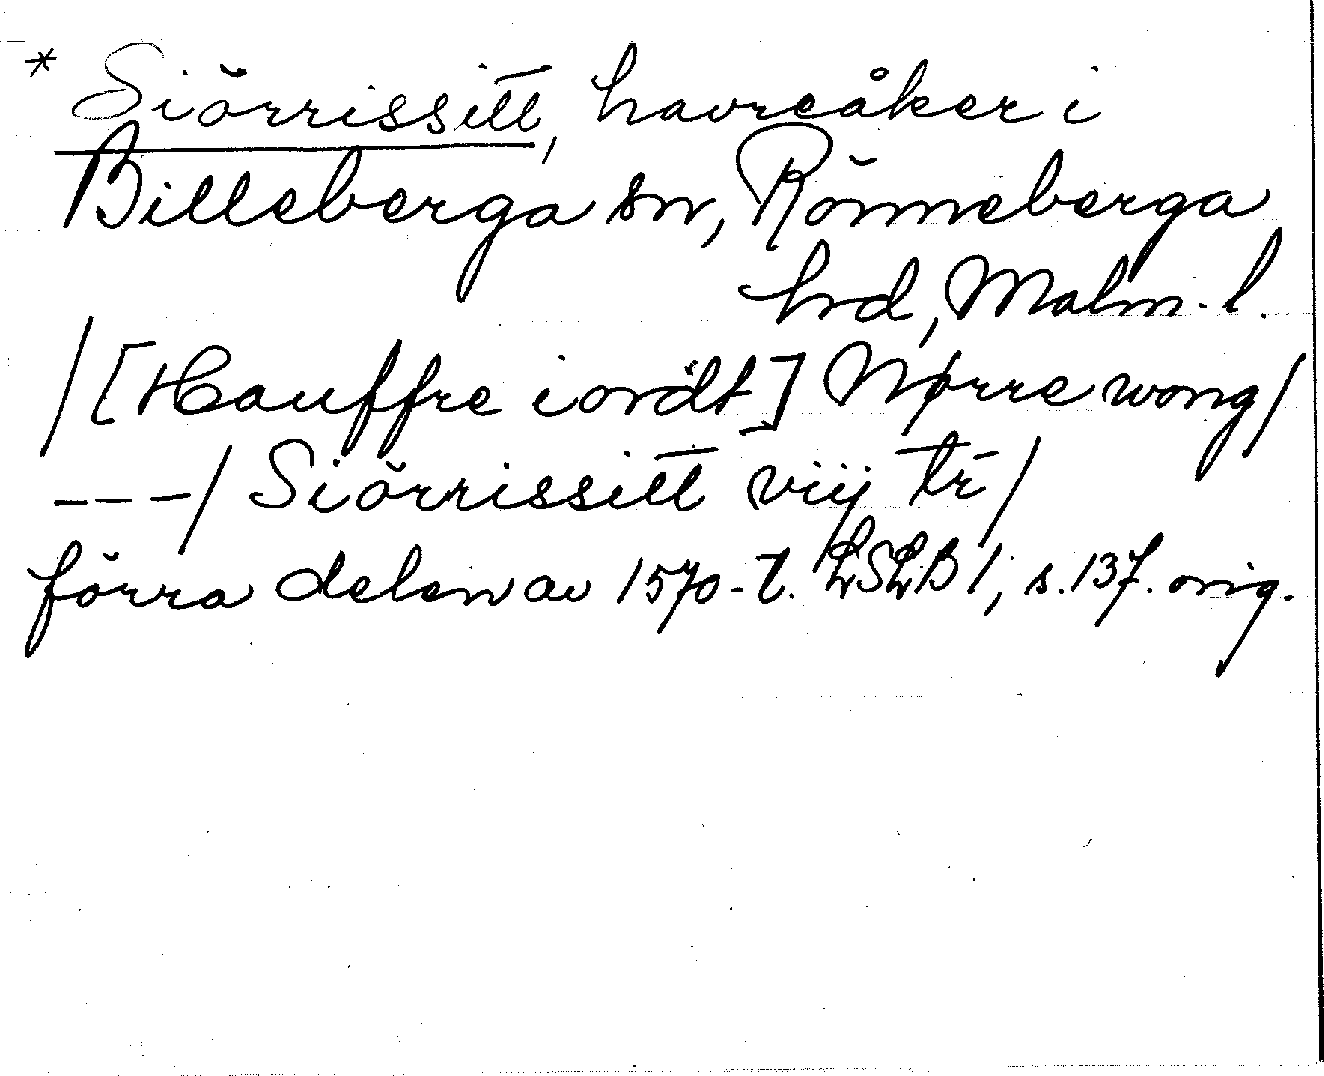 * Siörrissitt, havreåker i
Billeberga sn, Rönneberga
hd, Malm. l.
/[Hauffre iordt] Nørre wong/
---/ Siörrissitt viij tr̄ /
förra delen av 1570-t. LSLB I, s. 137. orig.